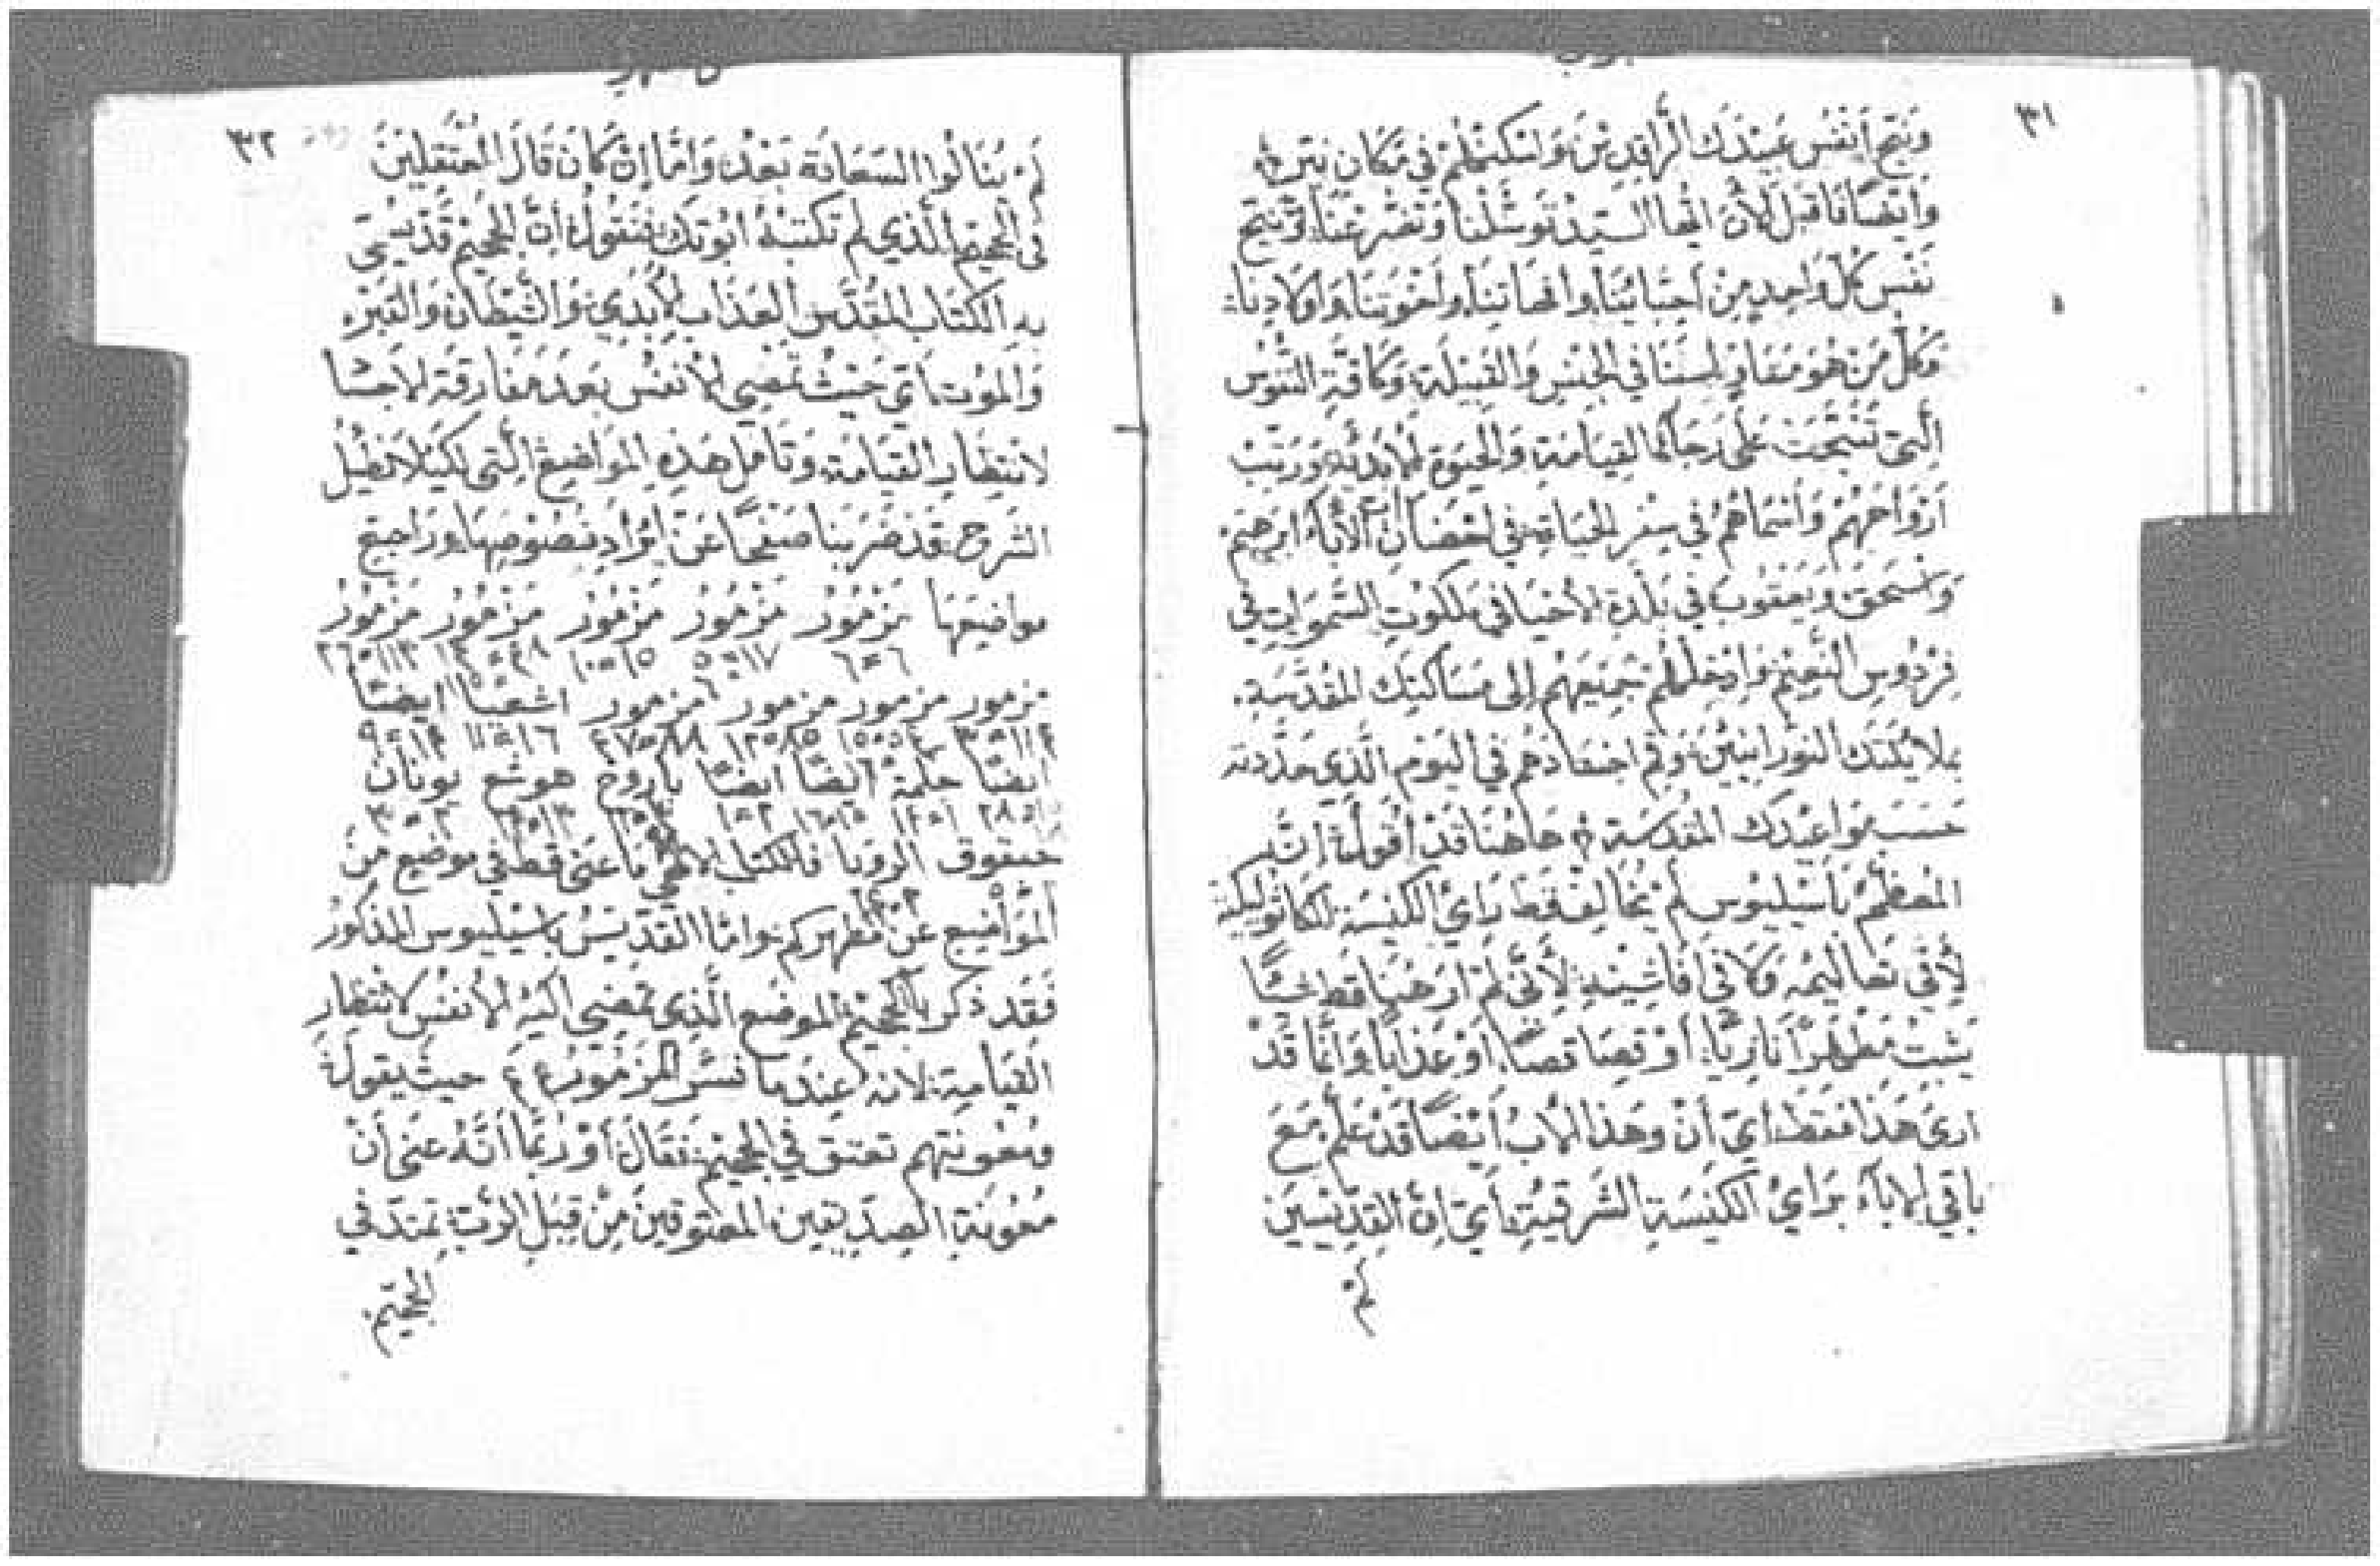 ٣١
ونيح أنفس عبيدك الراقدين واسكنهم في مكان نير
وأيضا فاقبل الآن ايها السيد توسلنا وتضرعنا ونيح
نفس كل واحد من احبائنا وامهاتنا واخوتنا واولادنا
وكل من هو مقارن لسنا في الجنس والقبيلة وكافة النفوس
التي تنيحت على رجاء القيامة والحيوة الأبدية ورتب
ارواحهم وأسماهم في سفر الحياة في احضان الآباء ابرهيم
واسحق ويعقوب في بلدة الأحيا في ملكوت السموات في
فردوس النعيم وادخلهم جميعهم إلى مساكنك المقدسة
بملايكتك النورانيين وقم اجسادهم في اليوم الذي حددته
حسب مواعيدك المقدسة هاهنا قد أقول ان
المعظم باسيليوس لم يخالف قط راي الكنيسة الكاثوليكية
لا في تعاليمه ولا في افاشينه لأني لم ار هنا قط شيا
يثبت مطهرا ناريا أو قصاصا أو عذابا وانما قد
ارى هذا فقط اي أن وهذا الأب أيضا قد علم مع
باقي الاباء براي الكنيسة الشرقية أي ان القديسين
لم
٣٢
لم ينالوا السعادة بعد واما إن كان قال المعتقلين
في الجحيم الذي لم تكتبه ابوتك فنقول أن الجحيم قد يسمى
به الكتاب المقدس العذاب الأبدي والشيطان والقبر
والموت اي حيث تمضي الأنفس بعد مفارقة الاجسا
لانتظار القيامة وتامل هذه المواضيع التي لكيلا نطيل
الشروح قد ضربنا صفحا عن ايراد نصوصها وراجع
مواضيعها مزمور مزمور مزمور مزمور مزمور
٦=٦ ١٧=٥ ١٥=١٠
مزمور مزمور مزمور مزمور اشعيا ايضا
ايضا حكمة ايضا ايضا باروخ هوشع يونان
حبقوق الرويا فالكتاب الالهي ما عنى قط في موضع من
المواضيع عن مطهركم واما القديس باسيليوس المذكور
فقد ذكر بالجحيم الموضع الذي تمضي اليه الأنفس لانتظار
القيامة لانه عندما فسر المزمور حيث يقول
ومعونتهم تعتق في الجحيم فقال أو ربما أنه عنى أن
معونة الصديقين المعتوقين من قبل الرب تمتد في
الجحيم